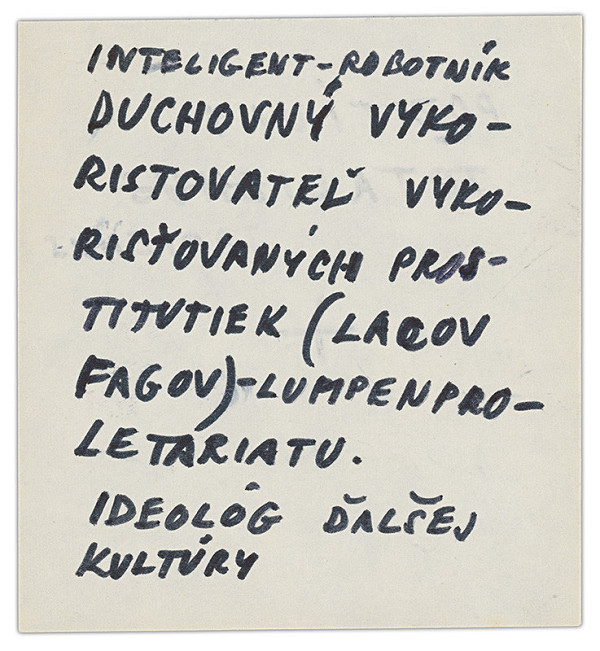 INTELIGENT-ROBOTNÍK
DUCHOVNÝ VYKO-
RISTOVATEĽ VYKO-
RISŤOVANÝCH PROS-
TITUTIEK (LACOV
FAGOV)-LUMPENPRO-
LETARIATU.
IDEOLÓG ĎALŠEJ
KULTÚRY